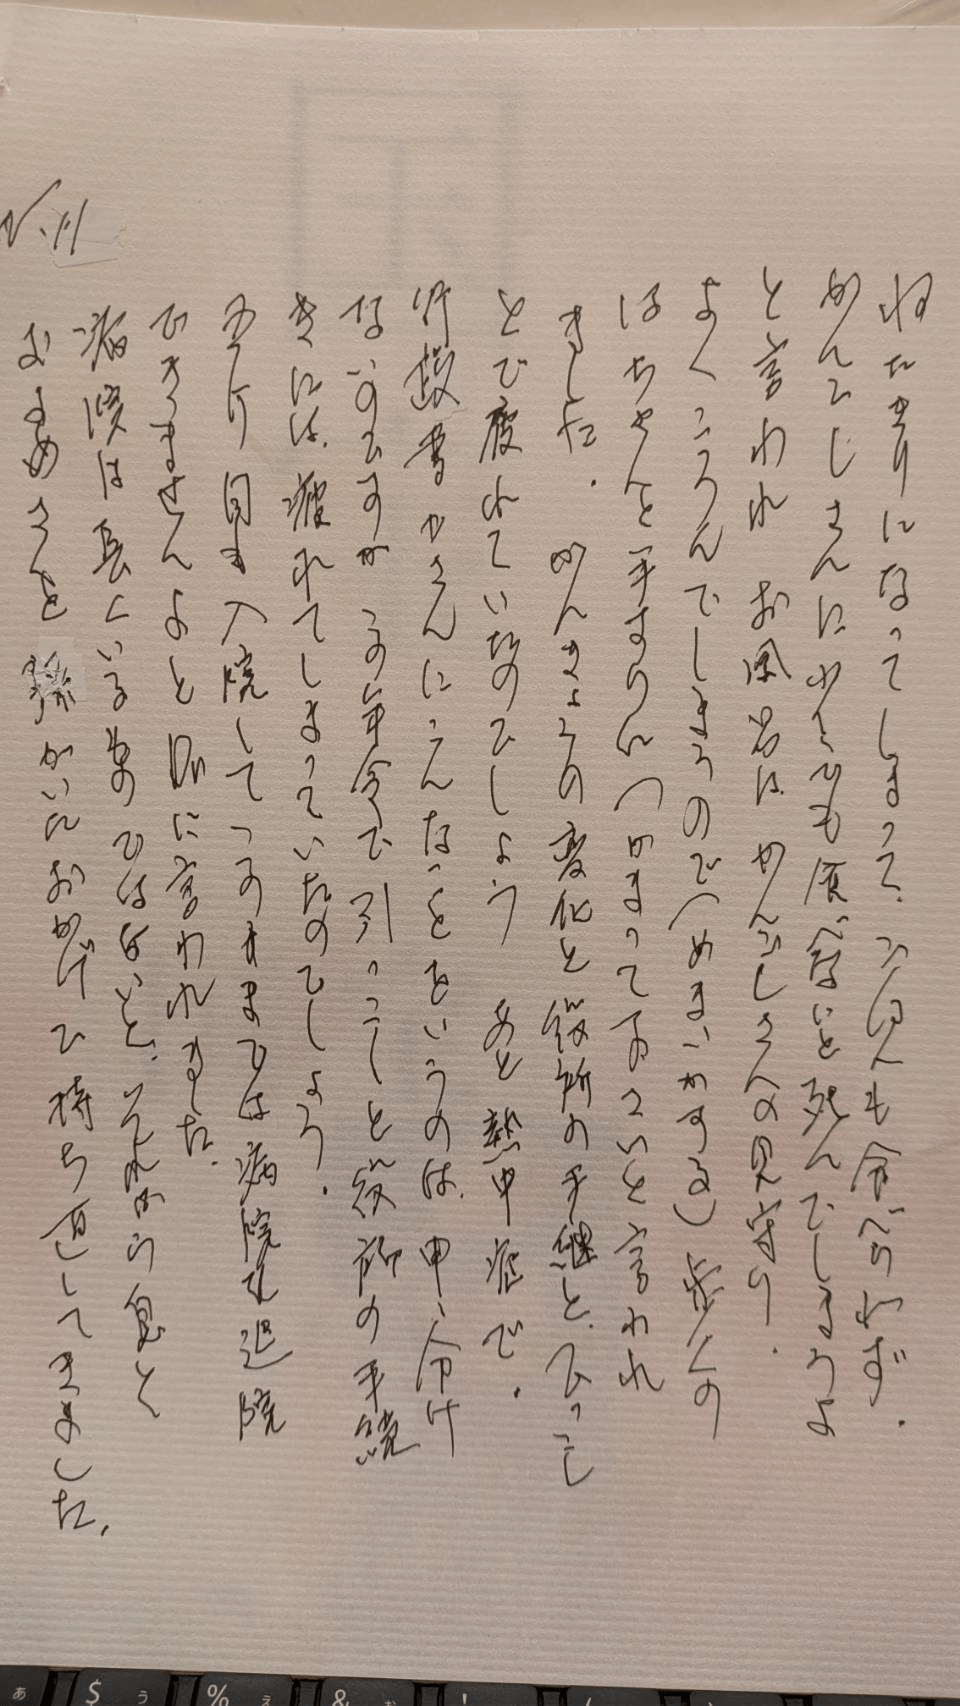 ねたきりになってしまって、ごはんも食べられず、
かんごしさんに少しでも食べないと死んでしまうよ
と言われ お風呂は、かんごしさんの見守り、
よくころんでしまうので(めまいがする)歩くの
はちゃんと手すりにつかまって下さいと言われ
ました。かんきょうの変化と役所の手継と、ひっこし
とで疲れていたのでしょう あと熱中症で。
なのに かさんにこんなことをいうのは、申し分け
ないのですが この年令で引っこしと役所の手続
きには、疲れてしまっていたのでしょう。
入院して このままでは病院を退院
できませんよと Drに言われました。
病院は長くいるものではないと、それから息と
およめさんと孫がいにおかげで持ち直してきました。